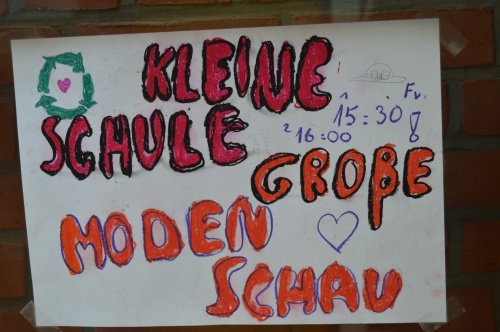 KLEINE
Fr.
1 15:30
SCHULE
2 16:00 !
GROßE
MODEN
SCHAU